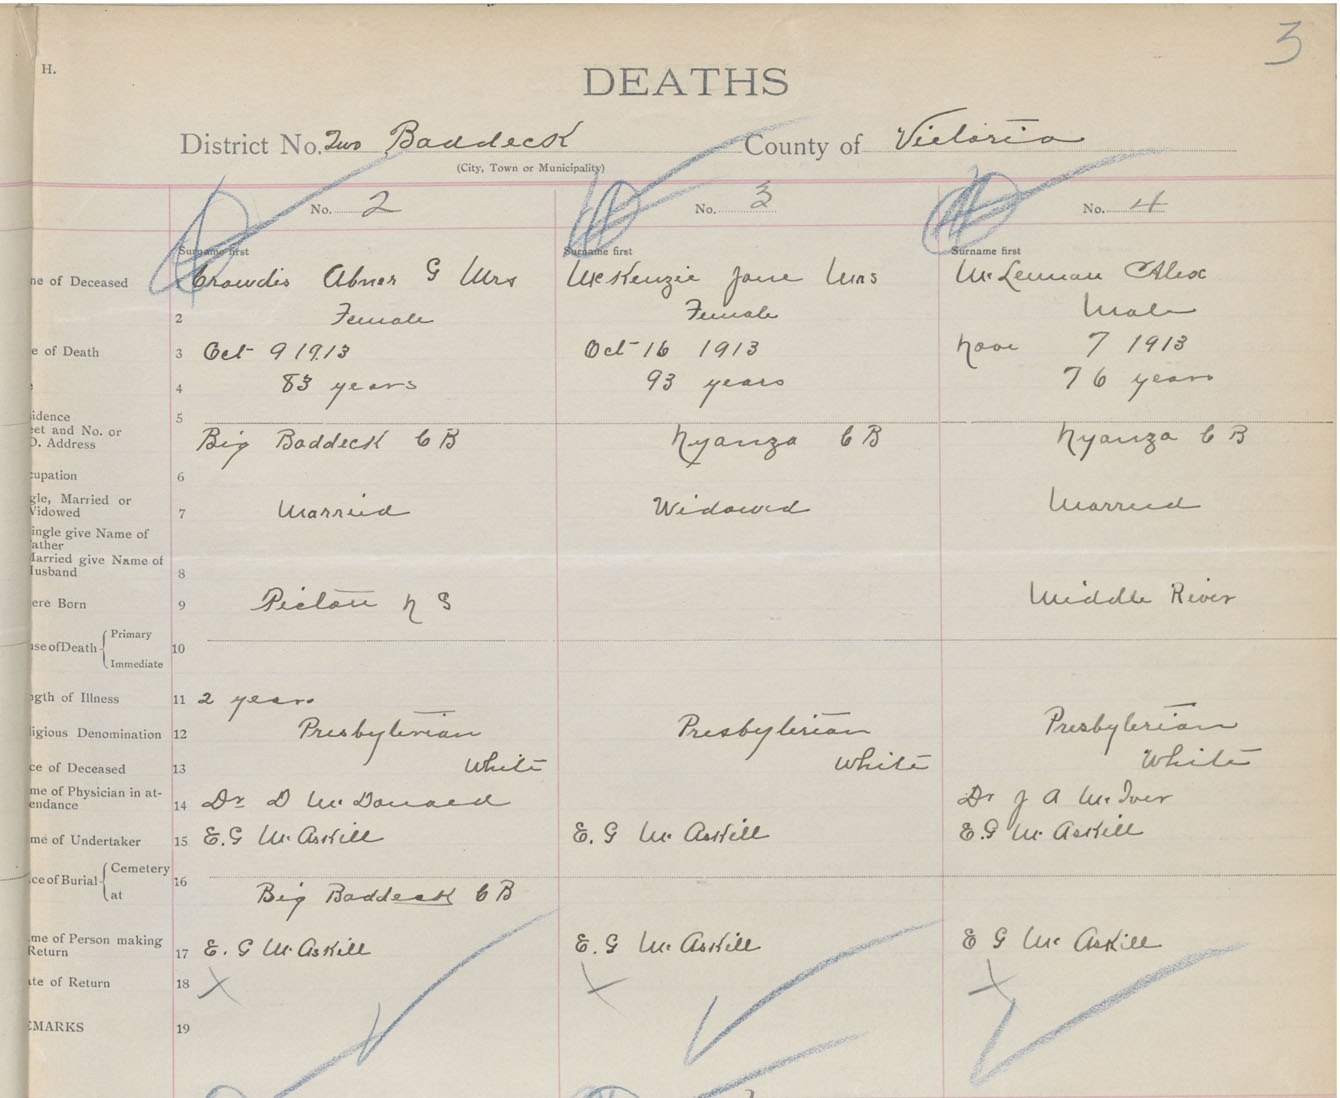 3
H.
DEATHS
District No. Two Baddeck County of Victoria
(City, Town or Municipality)
No. 2 No. 3 No. 4
Surname first Surname first Surname first
ne of Deceased Crowdis Abner G Mrs McKenzie Jane Mrs McLennan Alex
2 Female Female Male
e of Death 3 Oct 9 1913 Oct 16 1913 Nov 7 1913
4 83 years 93 years 76 years
idence 5
eet and No. or
O. Address Big Baddeck C B Nyanza C B Nyanza C B
cupation 6
gle, Married or
Vidowed 7 Married Widowed Married
ingle give Name of
ather
Married give Name of
Husband 8
ere Born 9 Pictou N S Middle River
use of Death Primary 10
Immediate
ngth of Illness 11 2 years
ligious Denomination 12 Presbyterian Presbyterian Presbyterian
ce of Deceased 13 White White White
me of Physician in at-
endance 14 Dr D McDonald Dr J A McIver
me of Undertaker 15 E.G McAskill E. G McAskill E.G McAskill
ce of Burial Cemetery 16
at Big Baddeck C B
me of Person making
Return 17 E. G McAskill E. G McAskill E G McAskill
te of Return 18 X X X
EMARKS 19